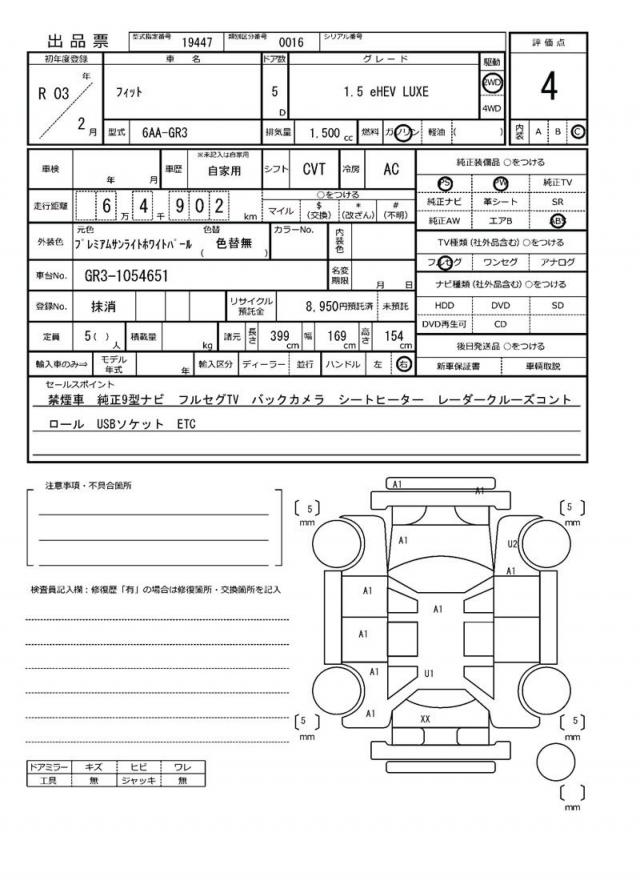 出品票 型式指定番号 19447 類別区分番号 0016 シリアル番号
評価点
初年度登録 車名 ドア数 グレード 駆動
R 03 年 フィット 5 D 1.5 eHEV LUXE 2WD 4
2 月 4WD
型式 6AA-GR3 排気量 1.500 cc 燃料 ガソリン 軽油 ( ) 内装 A B C
車検 年 月 車歴 ※未記入は自家用 自家用 シフト CVT 冷房 AC
純正装備品 ○をつける
PS PW 純正TV
純正ナビ 革シート SR
純正AW エアB ABS
走行距離 6 万 4 千 9 0 2 km
○をつける
マイル $ (交換) * (改ざん) # (不明)
外装色 元色 プレミアムサンライトホワイトパール 色替 ( 色替無 ) カラーNo. 内装色
TV種類(社外品含む)○をつける
フルセグ ワンセグ アナログ
車台No. GR3-1054651 名変期限 月 日
ナビ種類(社外品含む)○をつける
HDD DVD SD
DVD再生可 CD
登録No. 抹消 リサイクル預託金 8,950円預託済 未預託
定員 5( ) 人 積載量 kg 諸元 長さ 399 cm 幅 169 cm 高さ 154 cm
後日発送品 ○をつける
新車保証書 車輌取説
輸入車のみ⇒ モデル年式 年 輸入区分 ディーラー 並行 ハンドル 左 右
セールスポイント
禁煙車 純正9型ナビ フルセグTV バックカメラ シートヒーター レーダークルーズコント
ロール USBソケット ETC
注意事項・不具合箇所
検査員記入欄:修復歴「有」の場合は修復箇所・交換箇所を記入
A1
A1
[ 5 ] mm
[ 5 ] mm
A1
U2
A1
A1
A1
A1
A1
U1
A1
XX
[ 5 ] mm
[ 5 ] mm
[ ] mm
ドアミラー キズ ヒビ ワレ
工具 無 ジャッキ 無